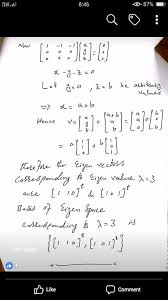 8:46
Now [1 -1 -1; 0 0 0; 0 0 0] [x; y; z] = [0; 0; 0]
x - y - z = 0
Let y = a, z = b be arbitrary values
⇒ x = a + b
Hence v = [x; y; z] = [a+b; a; b] = [a; a; 0] + [b; 0; b]
= a [1; 1; 0] + b [1; 0; 1]
Therefore the Eigen vectors
corresponding to Eigen value λ = 3
are [1 1 0]^t & [1 0 1]^t
Basis of Eigen Space
corresponding to λ = 3 is
{[1 1 0]^t, [1 0 1]^t}
Like